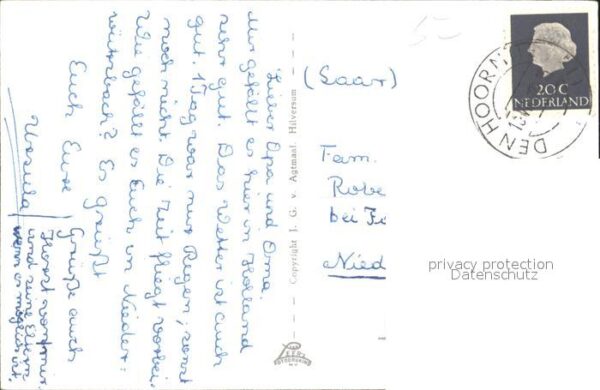 Lieber Opa und Oma.
Mir gefällt es hier in Holland
sehr gut. Das Wetter ist auch
gut. 1 Tag war nur Regen, sonst
noch nicht. Die Zeit fliegt vorbei.
Wie gefällt es Euch in Nieder=
würzbach? Es grüßt
Euch Eure
Ursula
Grüße auch
Horst von mir
und seine Eltern
wenn es möglich ist.
Copyright J. G. v. Agtmaal. Hilversum
(Saar)
Fam.
Robe
bei Fe
Nied
20 C
NEDERLAND
DEN HOORN
privacy protection
Datenschutz